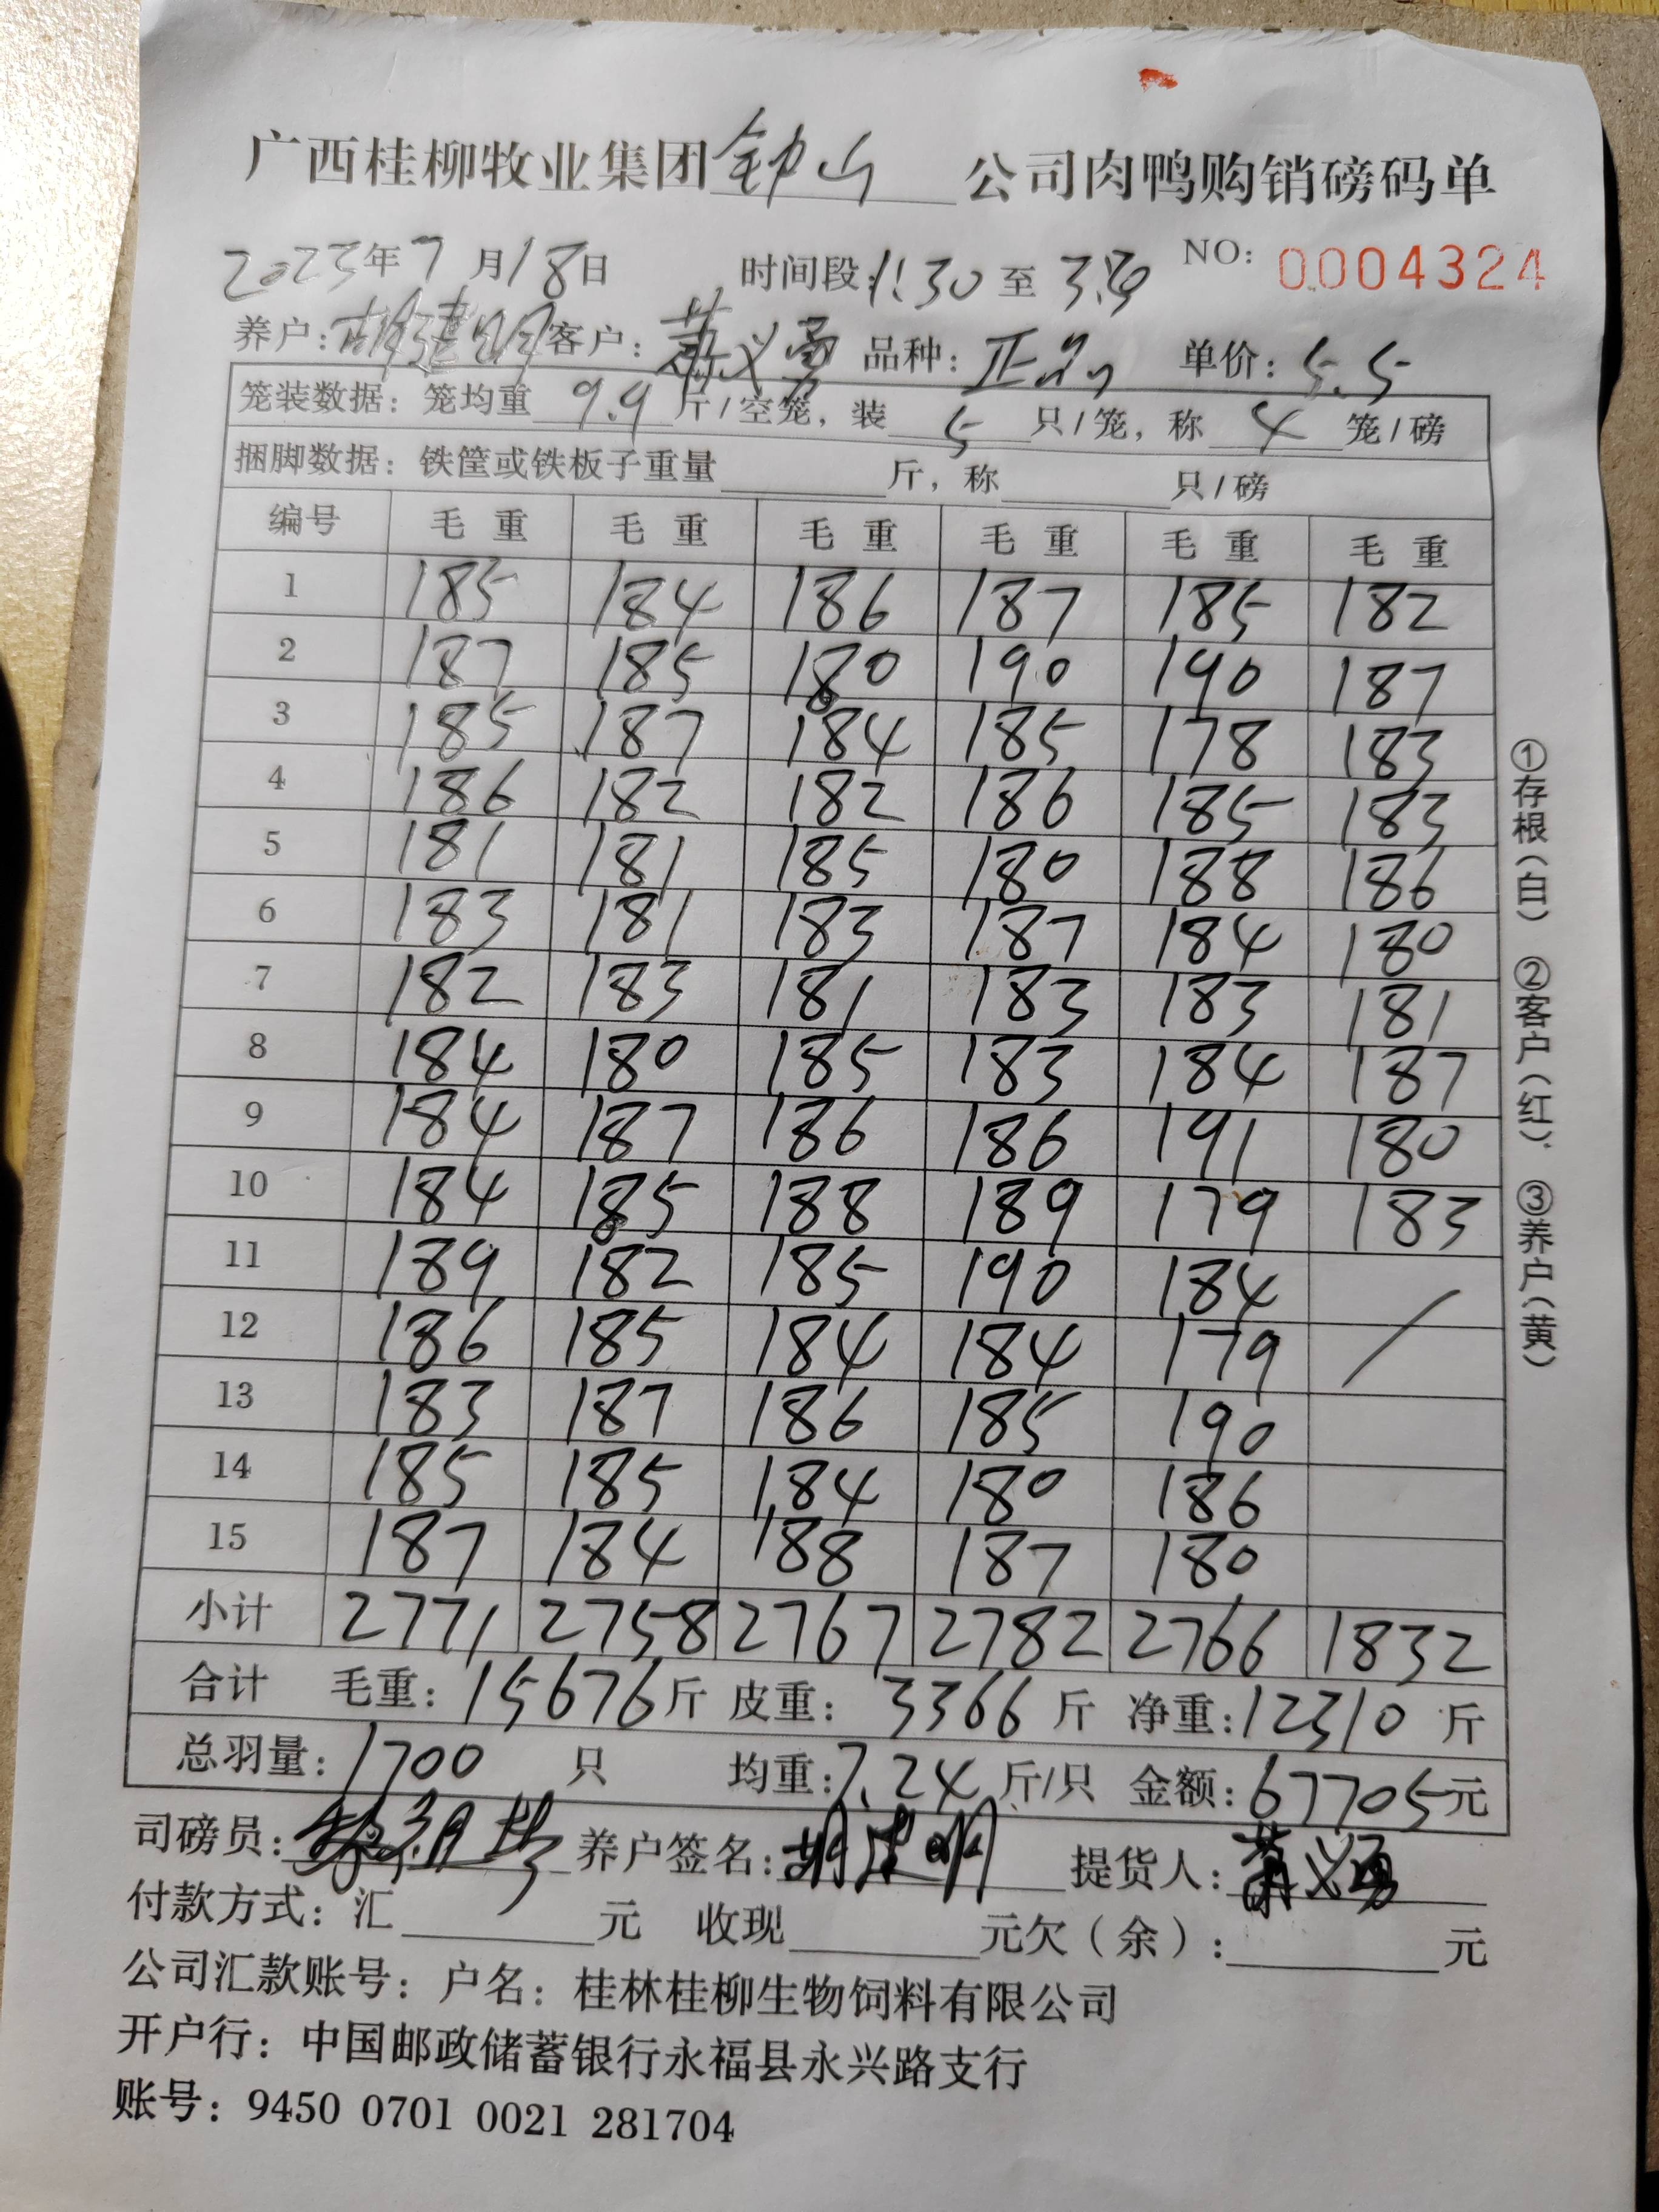 广西桂柳牧业集团钟山公司肉鸭购销磅码单
2023年7月18日 时间段:1:30至3: NO: 0004324
养户:胡建明 客户:萧义勇 品种: 正 单价:5.5
笼装数据: 笼均重 9.9 斤/空笼, 装 5 只/笼, 称 4 笼/磅
捆脚数据: 铁筐或铁板子重量 斤, 称 只/磅
编号 毛重 毛重 毛重 毛重 毛重 毛重
1 185 184 186 187 185 182
2 187 185 180 190 190 187
3 185 187 184 185 178 183
4 186 182 182 186 185 183
5 181 181 185 180 188 186
6 183 181 183 187 184 180
7 182 183 181 183 183 181
8 184 180 185 183 184 187
9 184 187 186 186 191 180
10 184 185 188 189 179 183
11 189 182 185 190 184
12 186 185 184 184 179
13 183 187 186 185 190
14 185 185 184 180 186
15 187 184 188 187 180
小计 2771 2758 2767 2782 2766 1832
合计 毛重: 15676斤 皮重: 3366 斤 净重:12310 斤
总羽量: 1700 只 均重:7.24斤/只 金额:67705元
司磅员: 养户签名:胡建明 提货人:萧义勇
付款方式: 汇 元 收现 元欠(余): 元
公司汇款账号: 户名: 桂林桂柳生物饲料有限公司
开户行: 中国邮政储蓄银行永福县永兴路支行
账号: 9450 0701 0021 281704
①存根(白) ②客户(红) ③养户(黄)